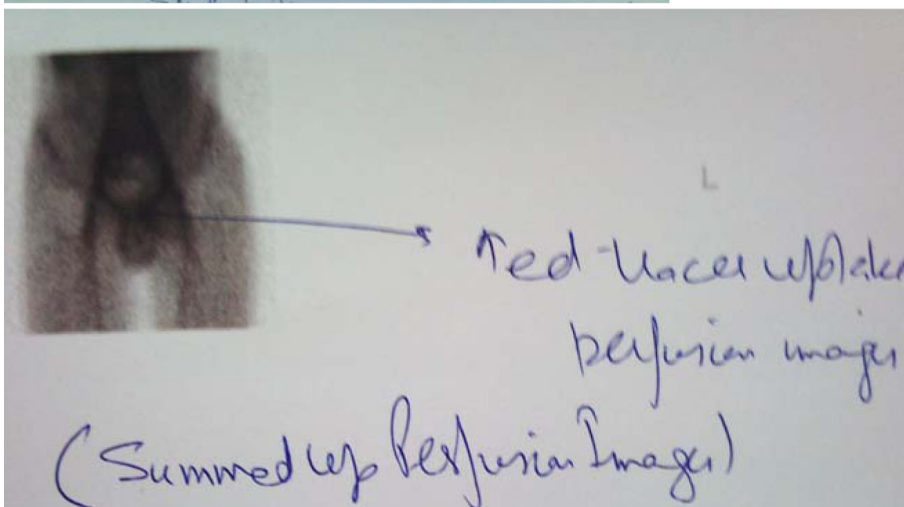 L
↑ed tracer uptake
perfusion images
(Summed up Perfusion Images)